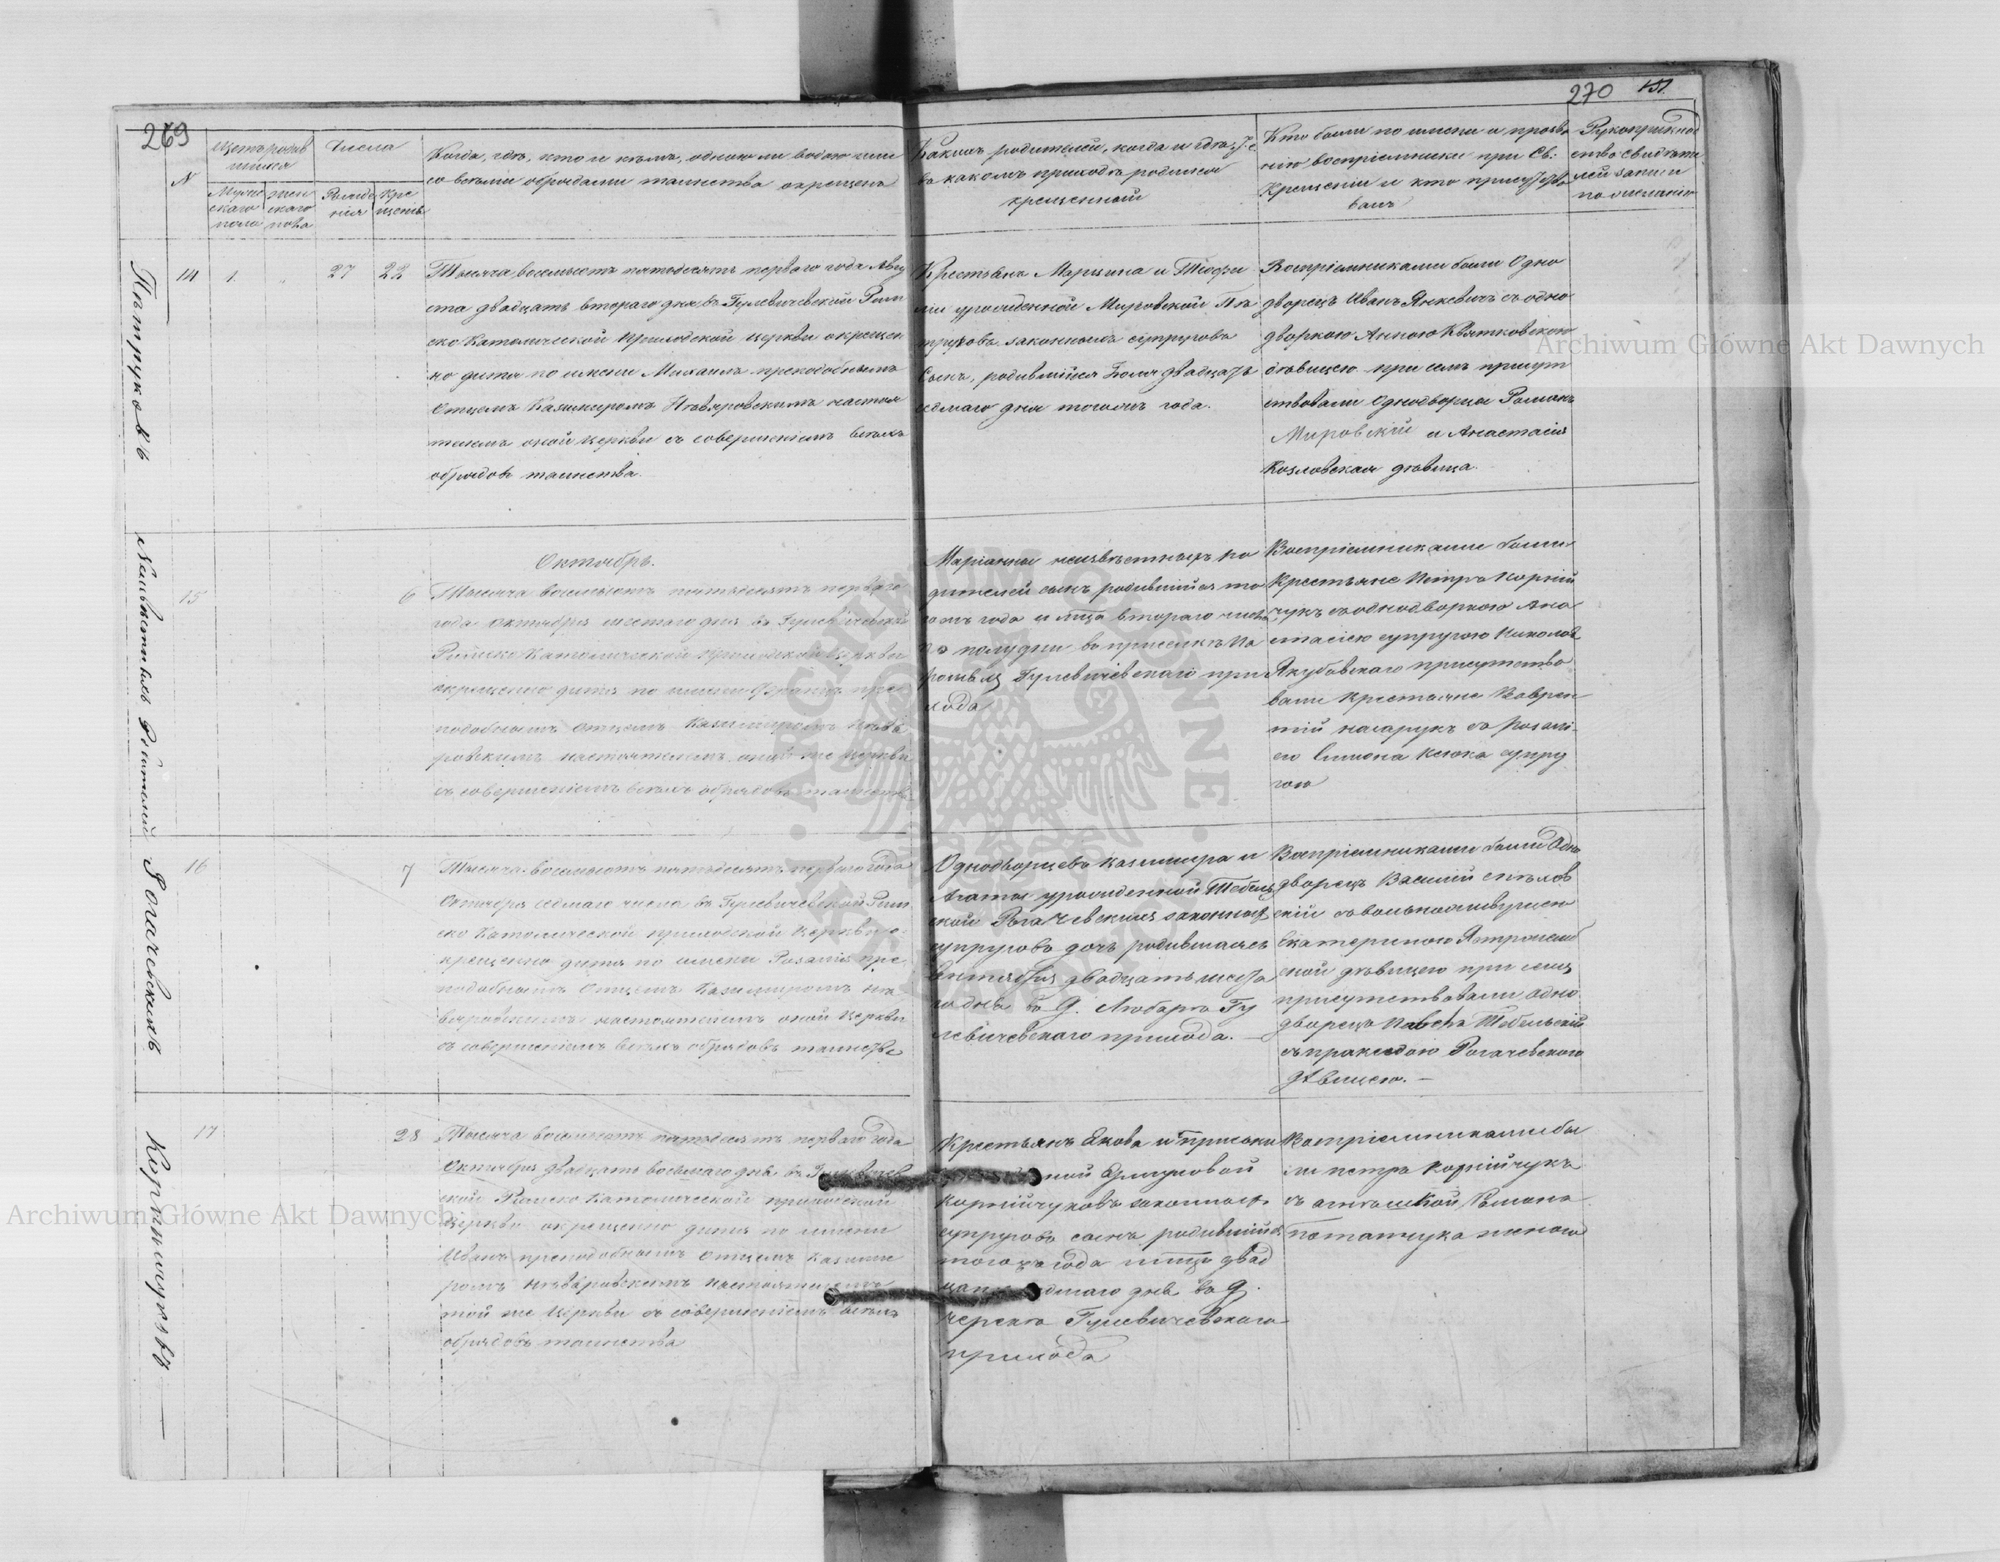 269
270 151
№
Счетъ родив
шихся
Числа
Мужес
каго
пола
жен
скаго
пола
Рожде
нія
Кре
щенія
Когда, гдѣ, кто и кѣмъ, одною ли водою или
со всѣми обрядами таинства окрещенъ
Какихъ родителей, когда и гдѣ
въ какомъ приходѣ родился
крещенный
Кто были по имени и прозва
нію воспріемники при Св:
Крещеніи и кто присутство
валъ
Рукоприклад
ство свидѣте
лей записи
по желанію
Пѣтруковъ
14 1 " 27 22
Тысяча восемьсотъ пятьдесятъ перваго года Авгу
ста двадцать втораго дня въ Гулевичевской Рим
ско Католической приходской церкви окрещен
но дитя по имени Михаилъ преподобнымъ
Отцемъ Казимиромъ Нѣвяровскимъ настоя
телемъ оной церкви съ совершеніемъ всѣхъ
обрядовъ таинства.
Крестьянъ Марцина и Теофи
ли урожденной Мировской Пѣ
труковъ законныхъ супруговъ
Сынъ, родившійся Іюля двадцать
седмаго дня тогожъ года.
Воспріемниками были Одно
дворецъ Иванъ Янкевичъ съ одно
дворкою Анною Квятковскою
дѣвицею при семъ присут
ствовали Однодворцы Романъ
Мировскій и Анастасія
Козловская дѣвица.
Неизвѣстныхъ Родителей
15 6
Октябрь.
Тысяча восемьсотъ пятьдесятъ перваго
года Октября шестаго дня въ Гулевичевской
Римско Католической приходской церкви
окрещенно дитя по имени Францъ пре
подобнымъ Отцемъ Казимиромъ Нѣвя
ровскимъ настоятелемъ оной же церкви
съ совершеніемъ всѣхъ обрядовъ таинства
Маріанны неизвѣстныхъ ро
дителей сынъ родившійся то
гожъ года и мца втораго числа
по полудни въ
Гулевичевскаго при
хода
Воспріемниками были
Крестьяне Петръ Корній
чукъ съ однодворкою Ана
стасіею супругою Николая
Якубовскаго присутство
вали крестьяне Ваврен
тій съ Розалі
ею Симона супру
гою
Рогачевскихъ
16 7
Тысяча восемьсотъ пятьдесятъ перваго года
Октября седмаго числа въ Гулевичевской Рим
ско Католической приходской церкви о
крещенно дитя по имени Розалія пре
подобнымъ Отцемъ Казимиромъ Нѣ
вяровскимъ настоятелемъ оной церкви
съ совершеніемъ всѣхъ обрядовъ таинства
Однодворцевъ Казимира и
Агаты урожденной
ской Рогачевскихъ законныхъ
супруговъ дочь родившаяся
Сентября двадцать шеста
го дня въ д. Любарка Гу
левичевскаго прихода. —
Воспріемниками были Одно
дворецъ Василій
скій
Екатериною
ской дѣвицею при семъ
присутствовали одно
дворецъ Павелъ
съ Рогачевского
дѣвицею. —
Корнійчуковъ
17 28
Тысяча восемьсотъ пятьдесятъ перваго года
Октября двадцать восьмаго дня въ Гулевичев
ской Римско Католической приходской
церкви окрещенно дитя по имени
Иванъ преподобнымъ Отцемъ Казими
ромъ Нѣвяровскимъ настоятелемъ
той же церкви съ совершеніемъ всѣхъ
обрядовъ таинства
Крестьянъ Якова и
ной
Корнійчуковъ законныхъ
супруговъ сынъ родившійся
тогожъ года и мца двад
цать седмаго дня въ д.
Гулевичевскаго
прихода
Воспріемниками бы
ли Петръ Корнійчукъ
съ Романа

Archiwum Główne Akt Dawnych
Archiwum Główne Akt Dawnych